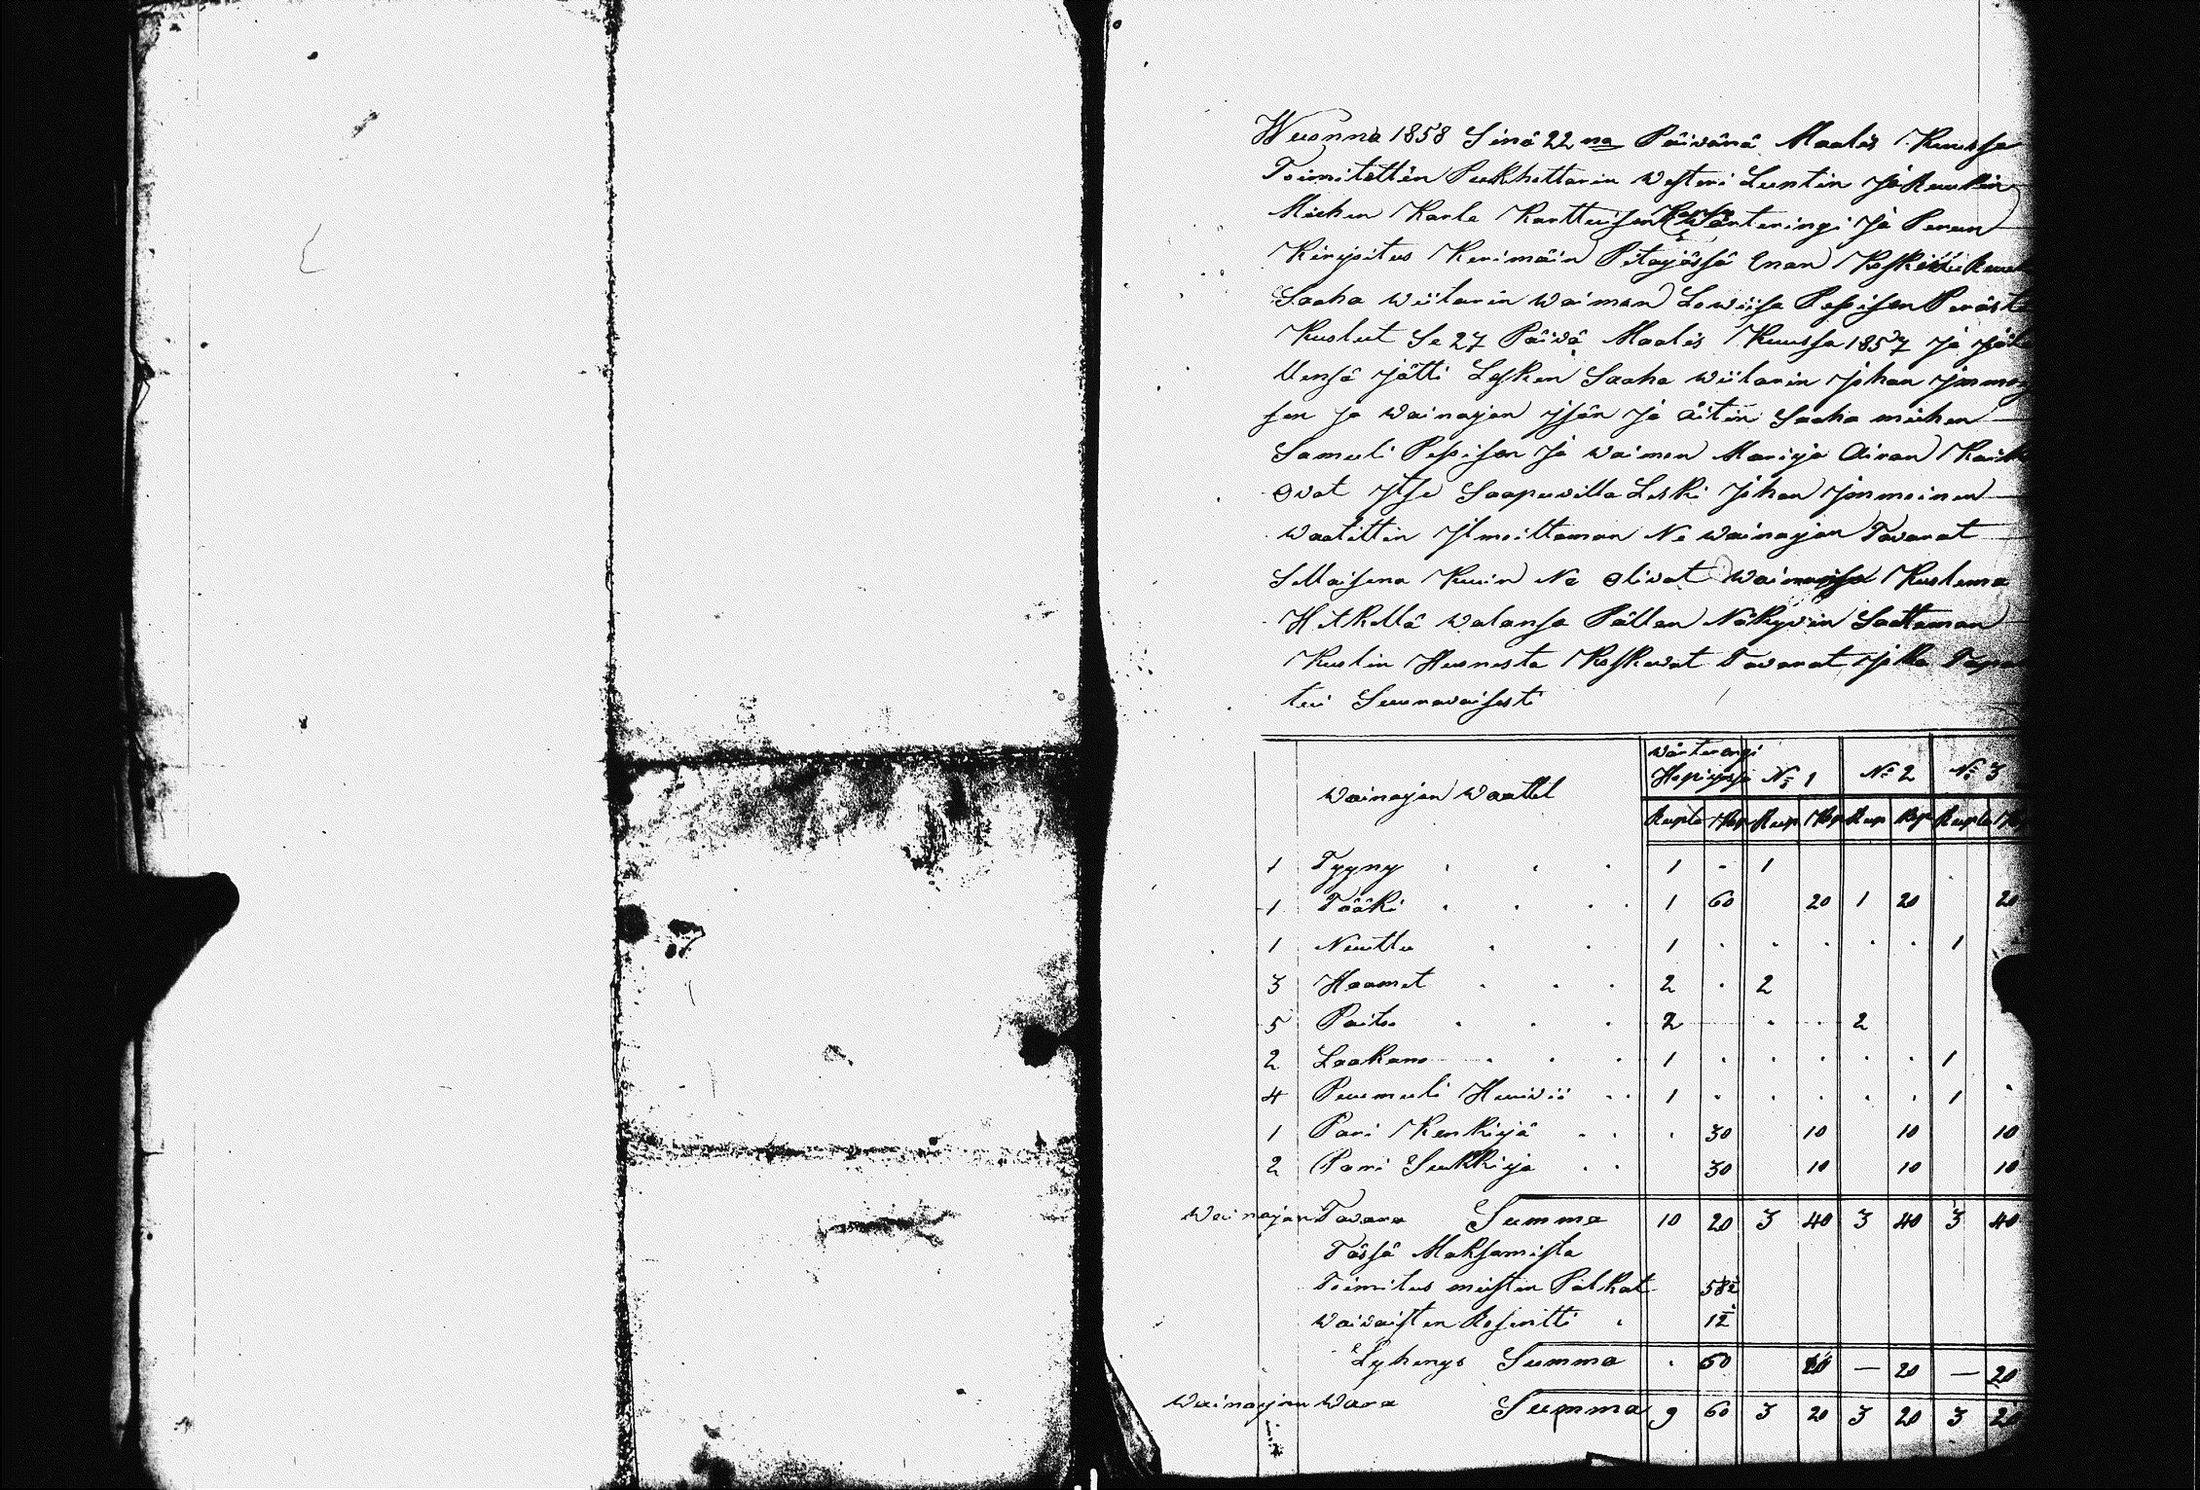 Wuonna 1858 Sinä 22 na Päivänä Maalis Kuussa
Toimitettin Pukhittarin Westeri Luntin ja kuukin
Miehen Karle Karttuisen Kansa Wärteringi Ja Perun
Kirjoitus Kerimäin Pitäjässä Enan
Saaha Wiitarin Waiman Lowiisa Pesisen Peräst
Kuolut Se 27 Päivä Maalis Kuussa 1857 Ja
llensä jätti Lesken Saaha Wiitarin Johan Immoi
sen Ja Wainajan Isän Ja Äitin Saaha miehen
Samuli Pesisen Ja Waimon Marija Airan
Ovat Itse Saapuvilla Leski Johan Immoinen
Waatittin Ilmoittaman Ne Wainajan Tavarat
Sellaisena Kuin Ne Olivat Wainajan Kuolema
Hetkellä Walansa Pällen Näkyvin Saattaman
Kuolin Huonesta Koskevat Tavarat Jotka Tapa
tui Seuravaisesti
Wainajan Waattet Wärteringi Hopijassa No 1 No 2 No 3
Rupla Kop Rup Kop Rup Kop Rupla Kop
1 Tyyny 1 - 1
1 Tääki 1 60 20 1 20 20
1 Nuuttu 1 1
3 Haamet 2 2
5 Paitoo 2 2
2 Laakano 1 1
4 Puumuli Huivii 1 1
1 Pari Kenkijä 30 10 10 10
2 Pari Sukkija 30 10 10 10
Wainajan Tavara Summa 10 20 3 40 3 40 3 40
Tässä Maksamista
Toimitus miesten Palkat 58½
Waivaisten Rosentti 1½
Lyhenys Summa 60 20 — 20 — 20
Wainajan Wara Summa 9 60 3 20 3 20 3 20